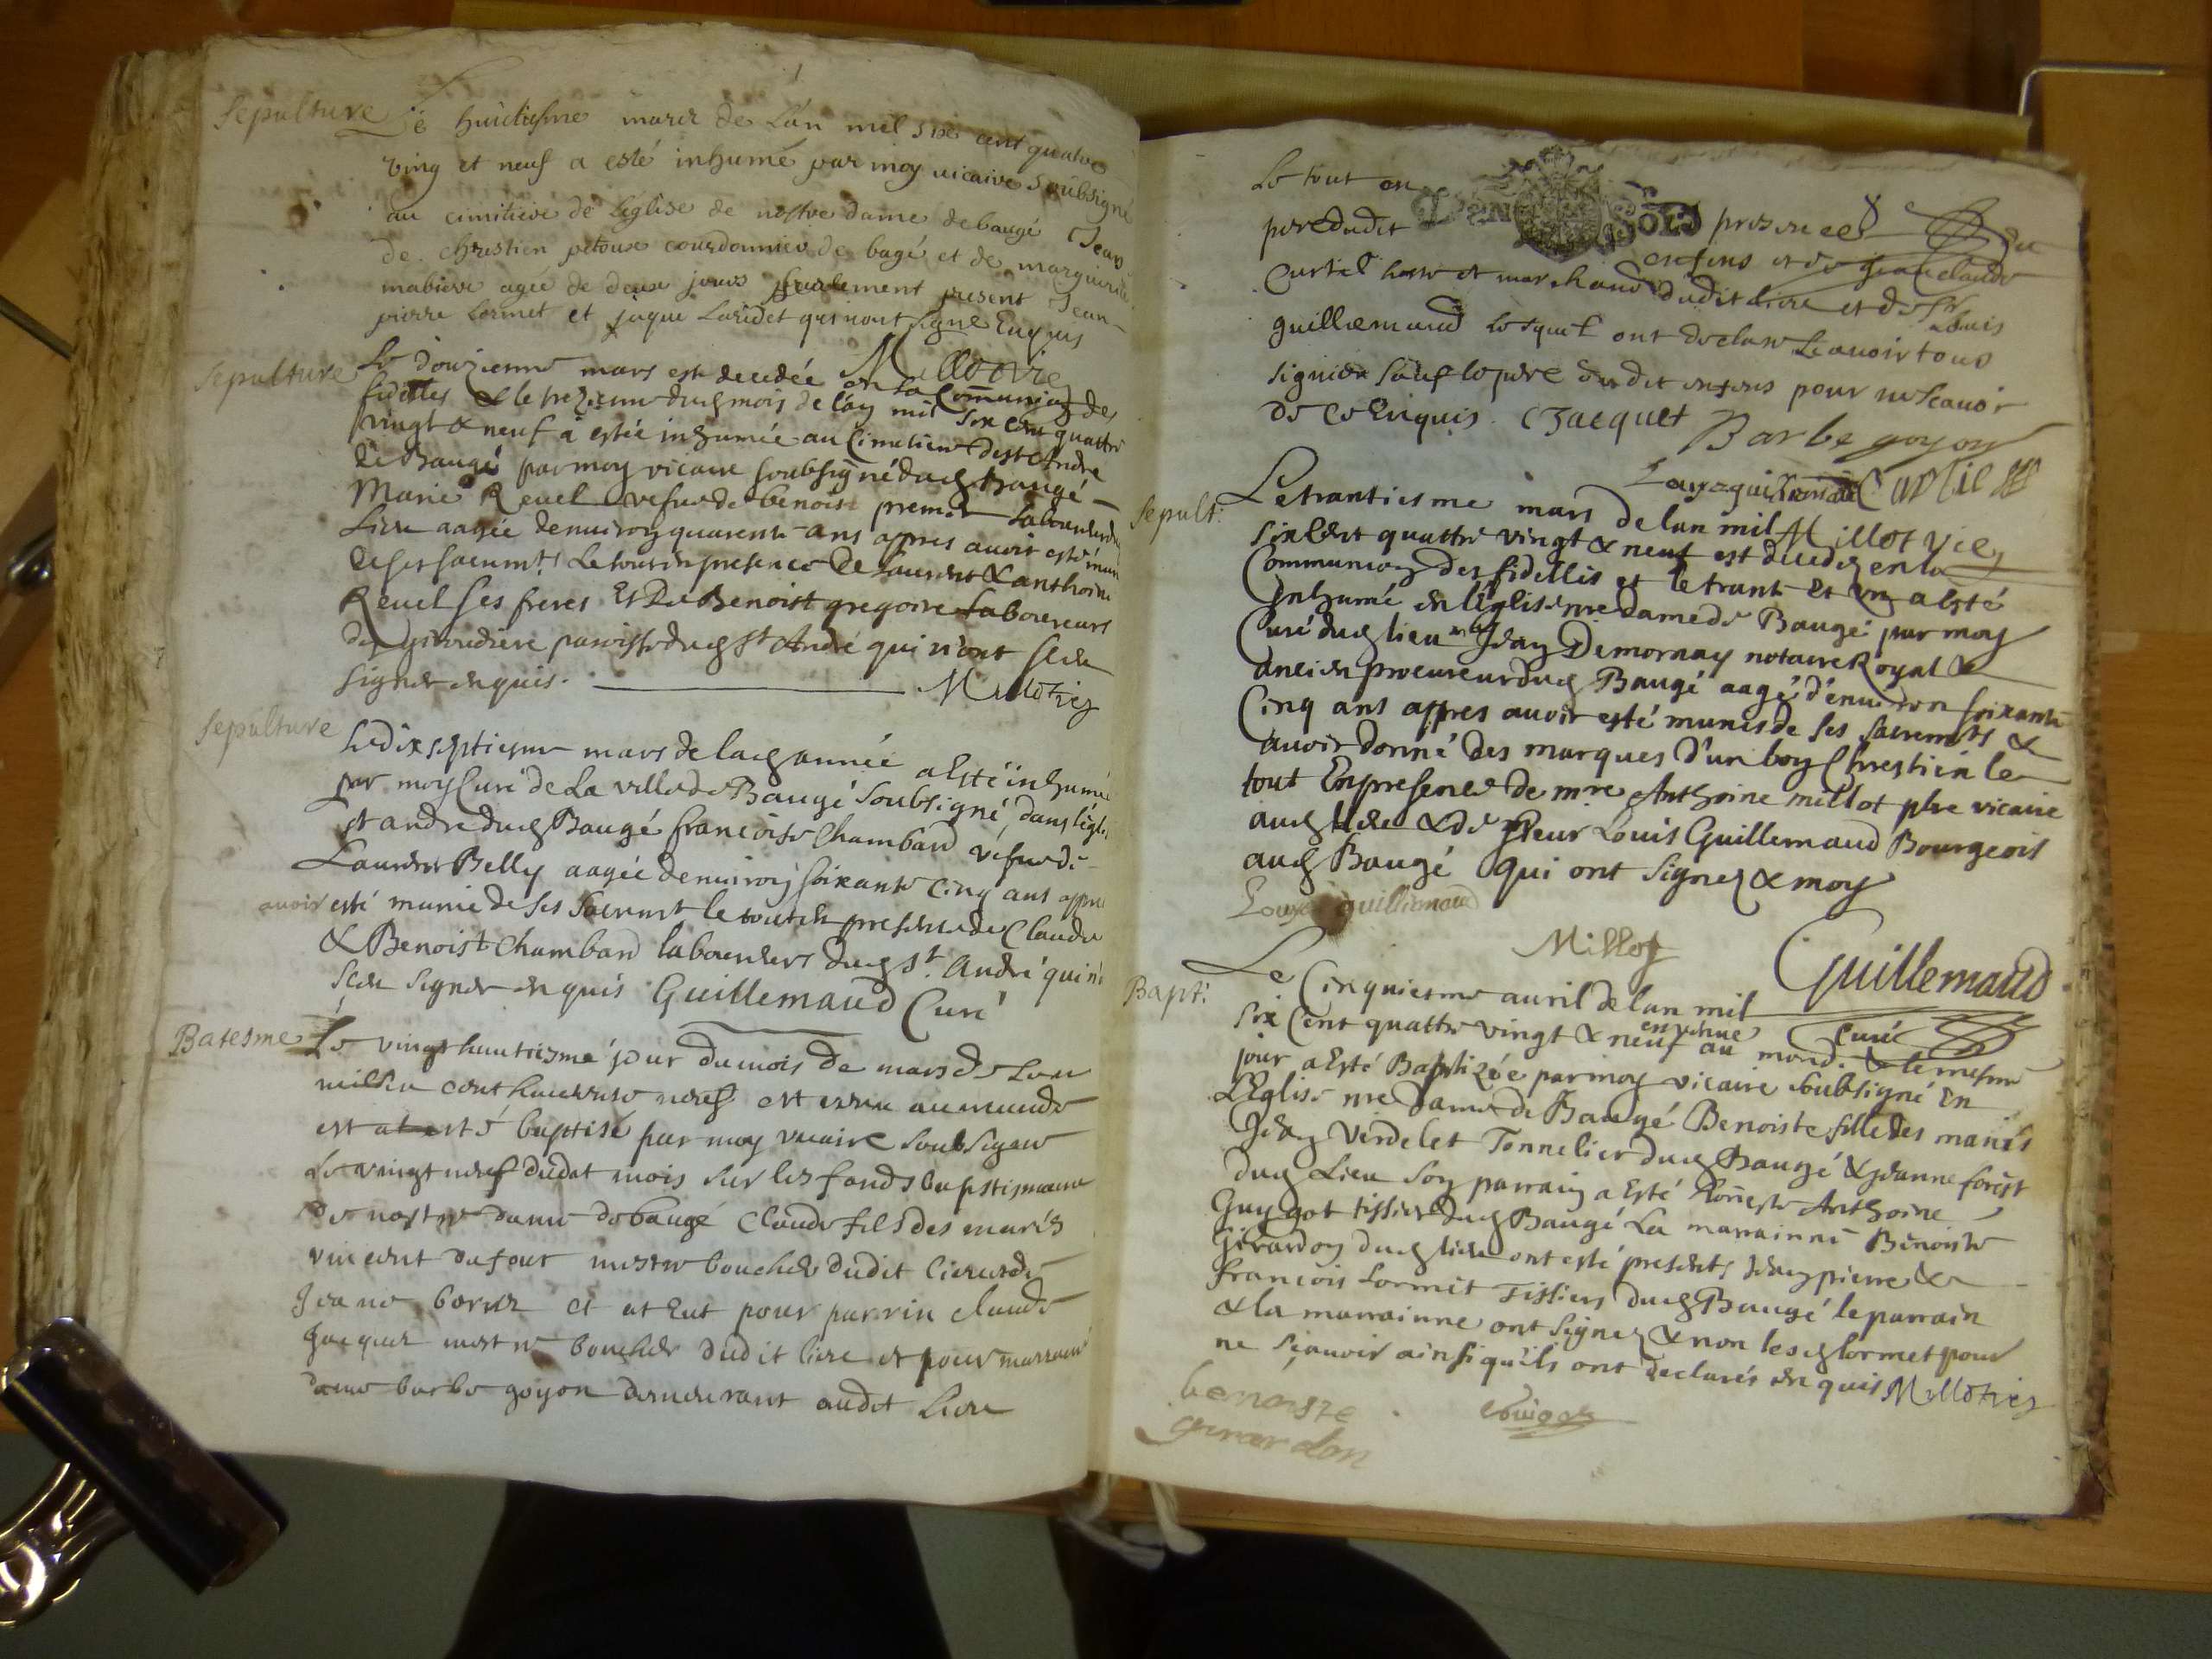 Sepulture Le huictiesme mars de L'an mil six cent quatre
ving et neuf a esté inhumé par moy vicaire soubsigné
au cimitiere de L'église de nostre dame de baugé Jean
de Chrestien petoux courdonnier de bagé et de marguerite
mabiere agée de deux jours seulement present Jean-
pierre Lormet et jaque Laridet qui nont signe Enquis
Millot vic
Sepulture Le douzieme mars est decedée en la Communion des
fidelles & le trezieme dud mois de l'an mil six cent quattre
vingt & neuf a estée inhumée au Cimetiere de st Andre
de Baugé par moy vicaire soubsigné dud Baugé
Marie Revel vefue de benoist premet laboureur du
Lieu aagée denuiron quarente ans appres auoir esté muni
de ses sacremts Le tout en presence de Laurent & anthoine
Revel ses freres Et De Benoist gregoire laboureurs
de girodiere paroisse dud St André qui n'ont sceu
signer enquis. Millot vic
Sepulture Le dix septieme mars de lad année a Esté inhumée
par moy Curé de La ville de Baugé soubsigné dans l'églis
st andre dud Baugé françoise Chambard vefue de
Laurent Belly aagée denuiron soixante cinq ans appres
avoir esté munie de ses sacremt le tout en presence de Claude
& Benoist Chambard laboureurs dud St. André qui n'
sceu signer enquis Guillemaud Curé
Batesme Le vingt huitiesme jour du mois de mars de Lan
mil six cent huictante neuf est venu au monde
et at esté baptisé par moy vicaire soubsigné
Le vingt neuf dudit mois sur les fonds baptismaux
de nostre dame de baugé Claude fils des mariés
vincent dufour mestre boucher dudit lieu et de
Jeanne et at Eut pour parrin claude
Jacquet mestre boucher dudit lieu et pour marraine
dame barbe goyon demeurant audit Lieu
Le tout en presence
pere dudit enfens et de Jean claude
DEN SOLS
Curtil hoste et marchand dudit lieu et de Sr Louis
guillemaud lesquel ont declare scavoir tous
signier sauf le pere dudit enfens pour ne scavoir
de ce Enquis. C Jacquet Barbe goyon
Louys guillemaud Curtil
Millot vic
Sepult. Le trantiesme mars de lan mil
six Cent quattre vingt & neuf est decedez en la
Communion des fidellis et le trant et un a esté
Inhumé en l'église nre dame de Baugé par moy
Curé dud lieu Jean Demornay notaire Royal &
ancien procureur dud Baugé aagé d'enuiron soixante
Cinq ans appres auoir esté munis de ses sacremts &
auoir donné des marques d'un bon Chrestien le
tout En presence de mre Anthoine millot pbre vicaire
aud lieu & de sieur Louis Guillemaud Bourgeois
aud Baugé qui ont signez & moy
Louys guillemaud
Millot
Guillemaud
Curé
Bapt. Le Cinquiesme auril de lan mil
six Cent quattre vingt & neuf est venue au monde & le mesme
jour a Esté Baptizée par moy vicaire soubsigné En
L'Eglise nre dame de Baugé Benoiste fille des mariés
Jean Verdelet Tonnelier dud Baugé & Jeanne forest
dud Lieu son parrain a Esté honneste Anthoine
Guygot tissier dud Baugé La marrainne Benoiste
Girardon dud lieu ont esté presents Jean pierre &
francois Lormet Tissiers dud Baugé le parrain
& la marrainne ont signez & non lesd lormet pour
ne sçauoir ainsi qu'ils ont declarés enquis Millot vic
benoiste
girardon